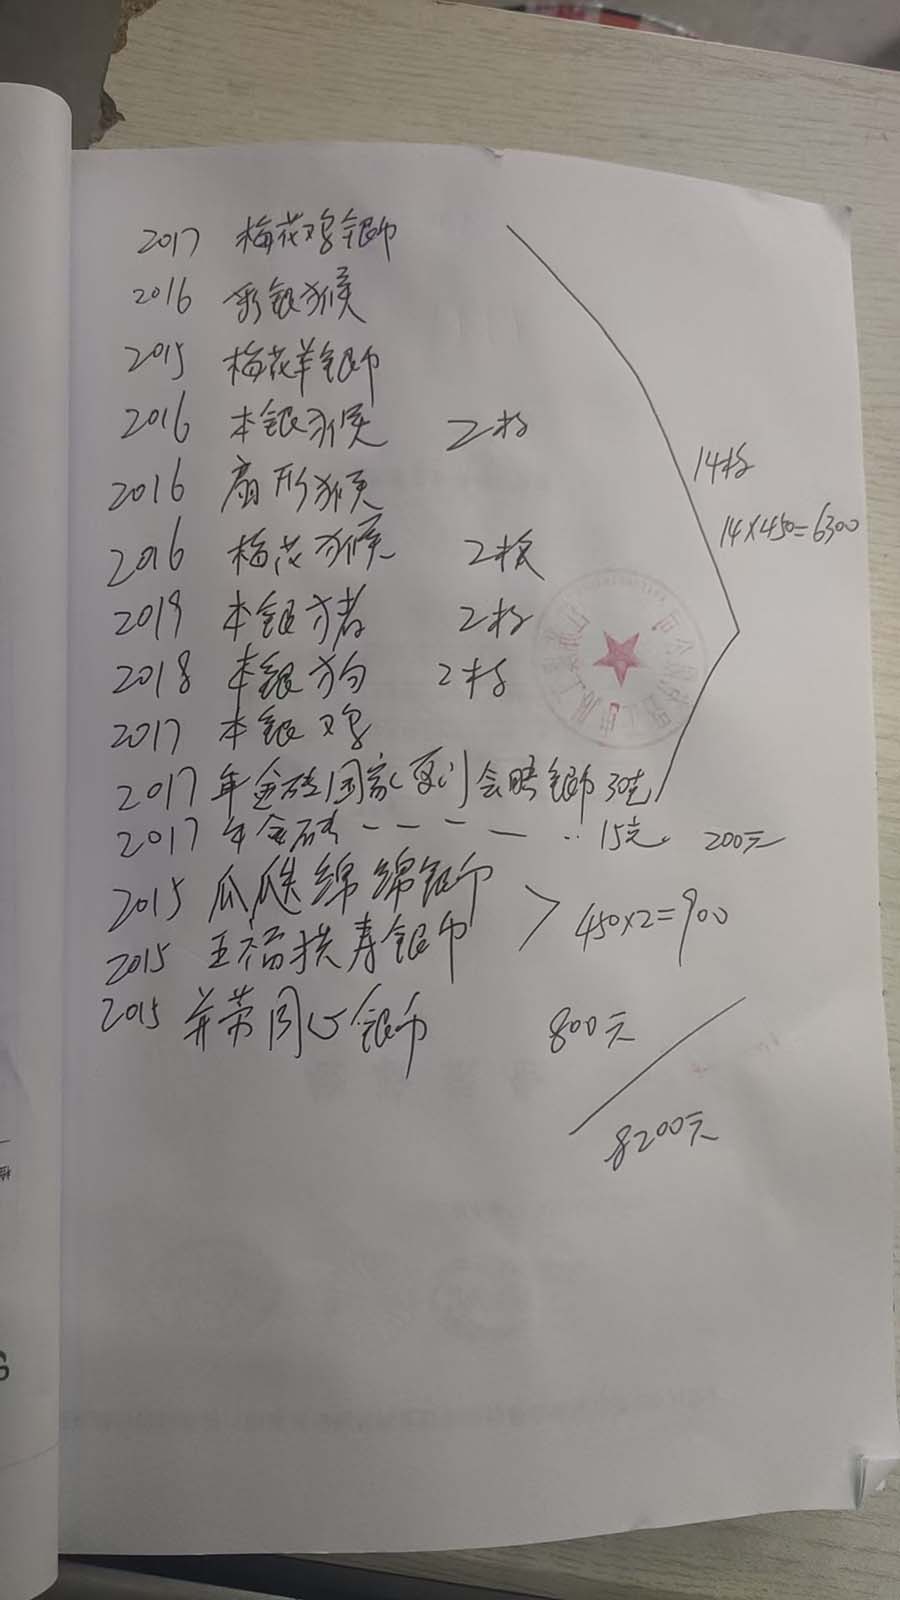 2017 梅花鸡银币
2016 彩银猴
2015 梅花羊银币
2016 本银猴 2枚
2016 扇形猴
14枚
2016 梅花猴 2枚
14×450=6300
2019 本银猪 2枚
2018 本银狗 2枚
2017 本银鸡
2017年金砖国家(厦门会晤银币 30克
2017年金砖---- ..15克 200元
2015 瓜瓞绵绵银币
450×2=900
2015 五福拱寿银币
2015 并蒂同心银币 800元
8200元